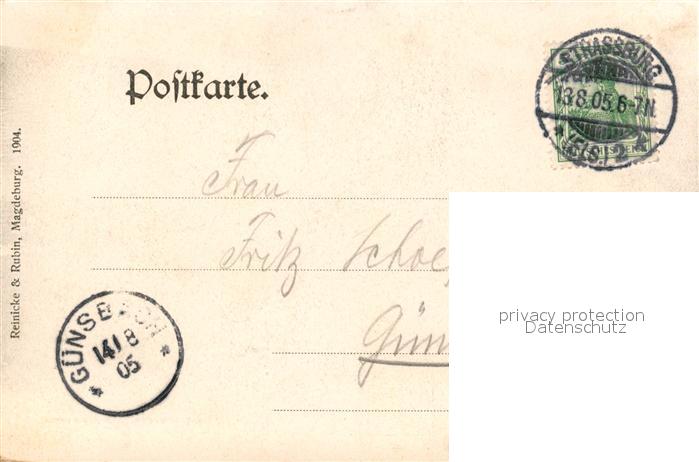 Postkarte.
STRASSBURG
13.8.05.6-7N.
* (Els.) 2 *
Frau
Fritz Schoe
Gün
GÜNSBACH
14/8
05
Reinicke & Rubin, Magdeburg. 1904.
privacy protection
Datenschutz